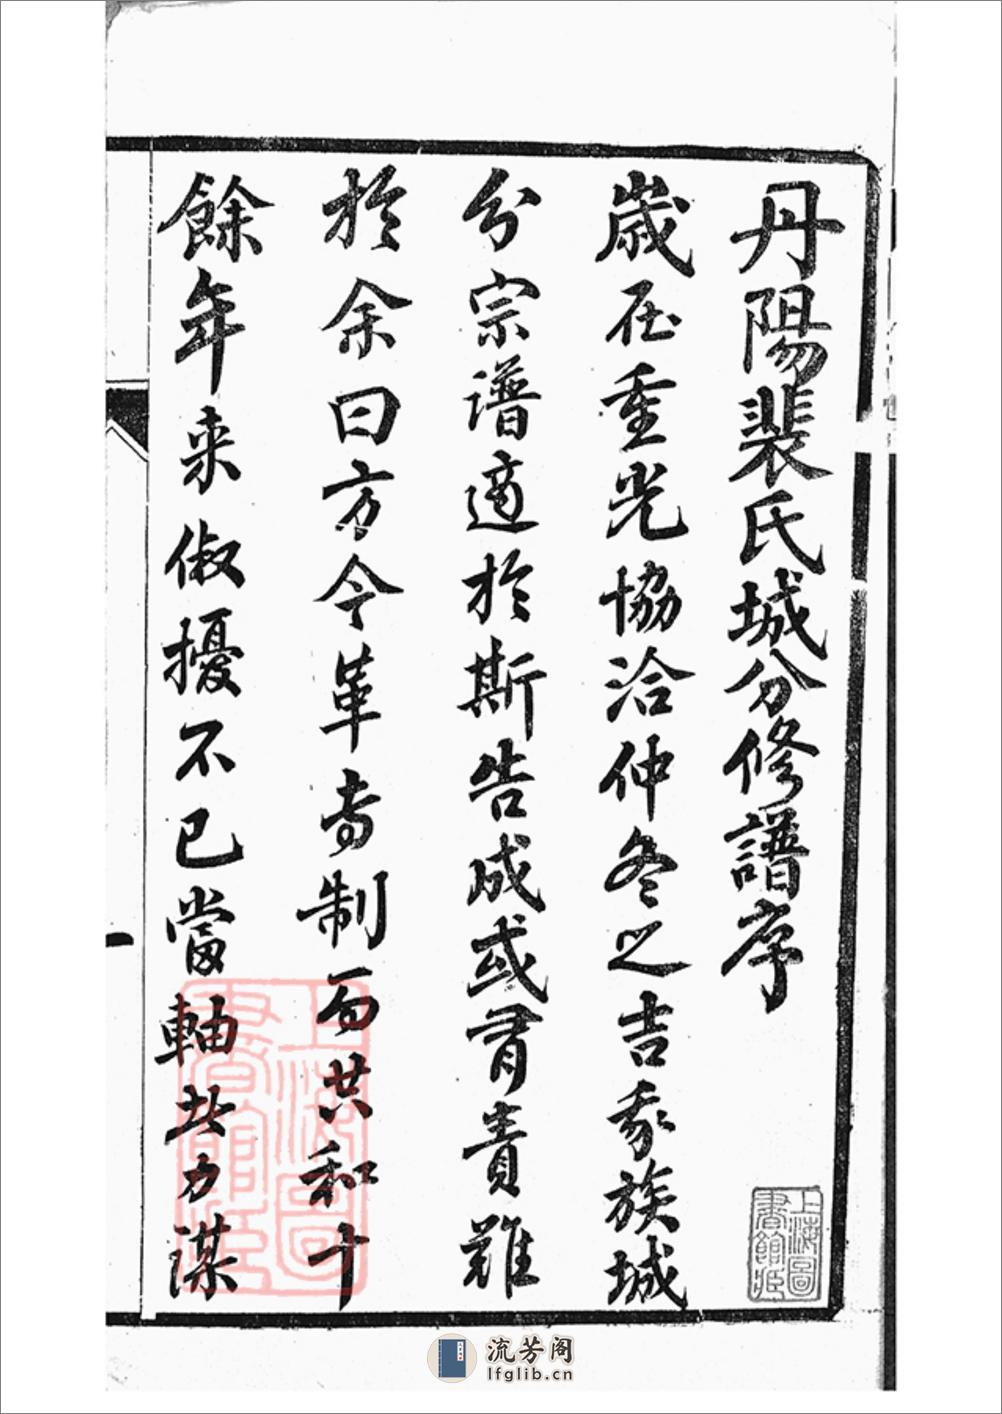 丹陽裴氏城分修譜序
歲在重光協洽仲冬之吉我族城
分宗譜適於斯告成或有責難
於余曰方今革專制而共和十
餘年来俶擾不已當軸者方謀
上海圖書館藏
上海圖書館藏
流芳阁
lfglib.cn